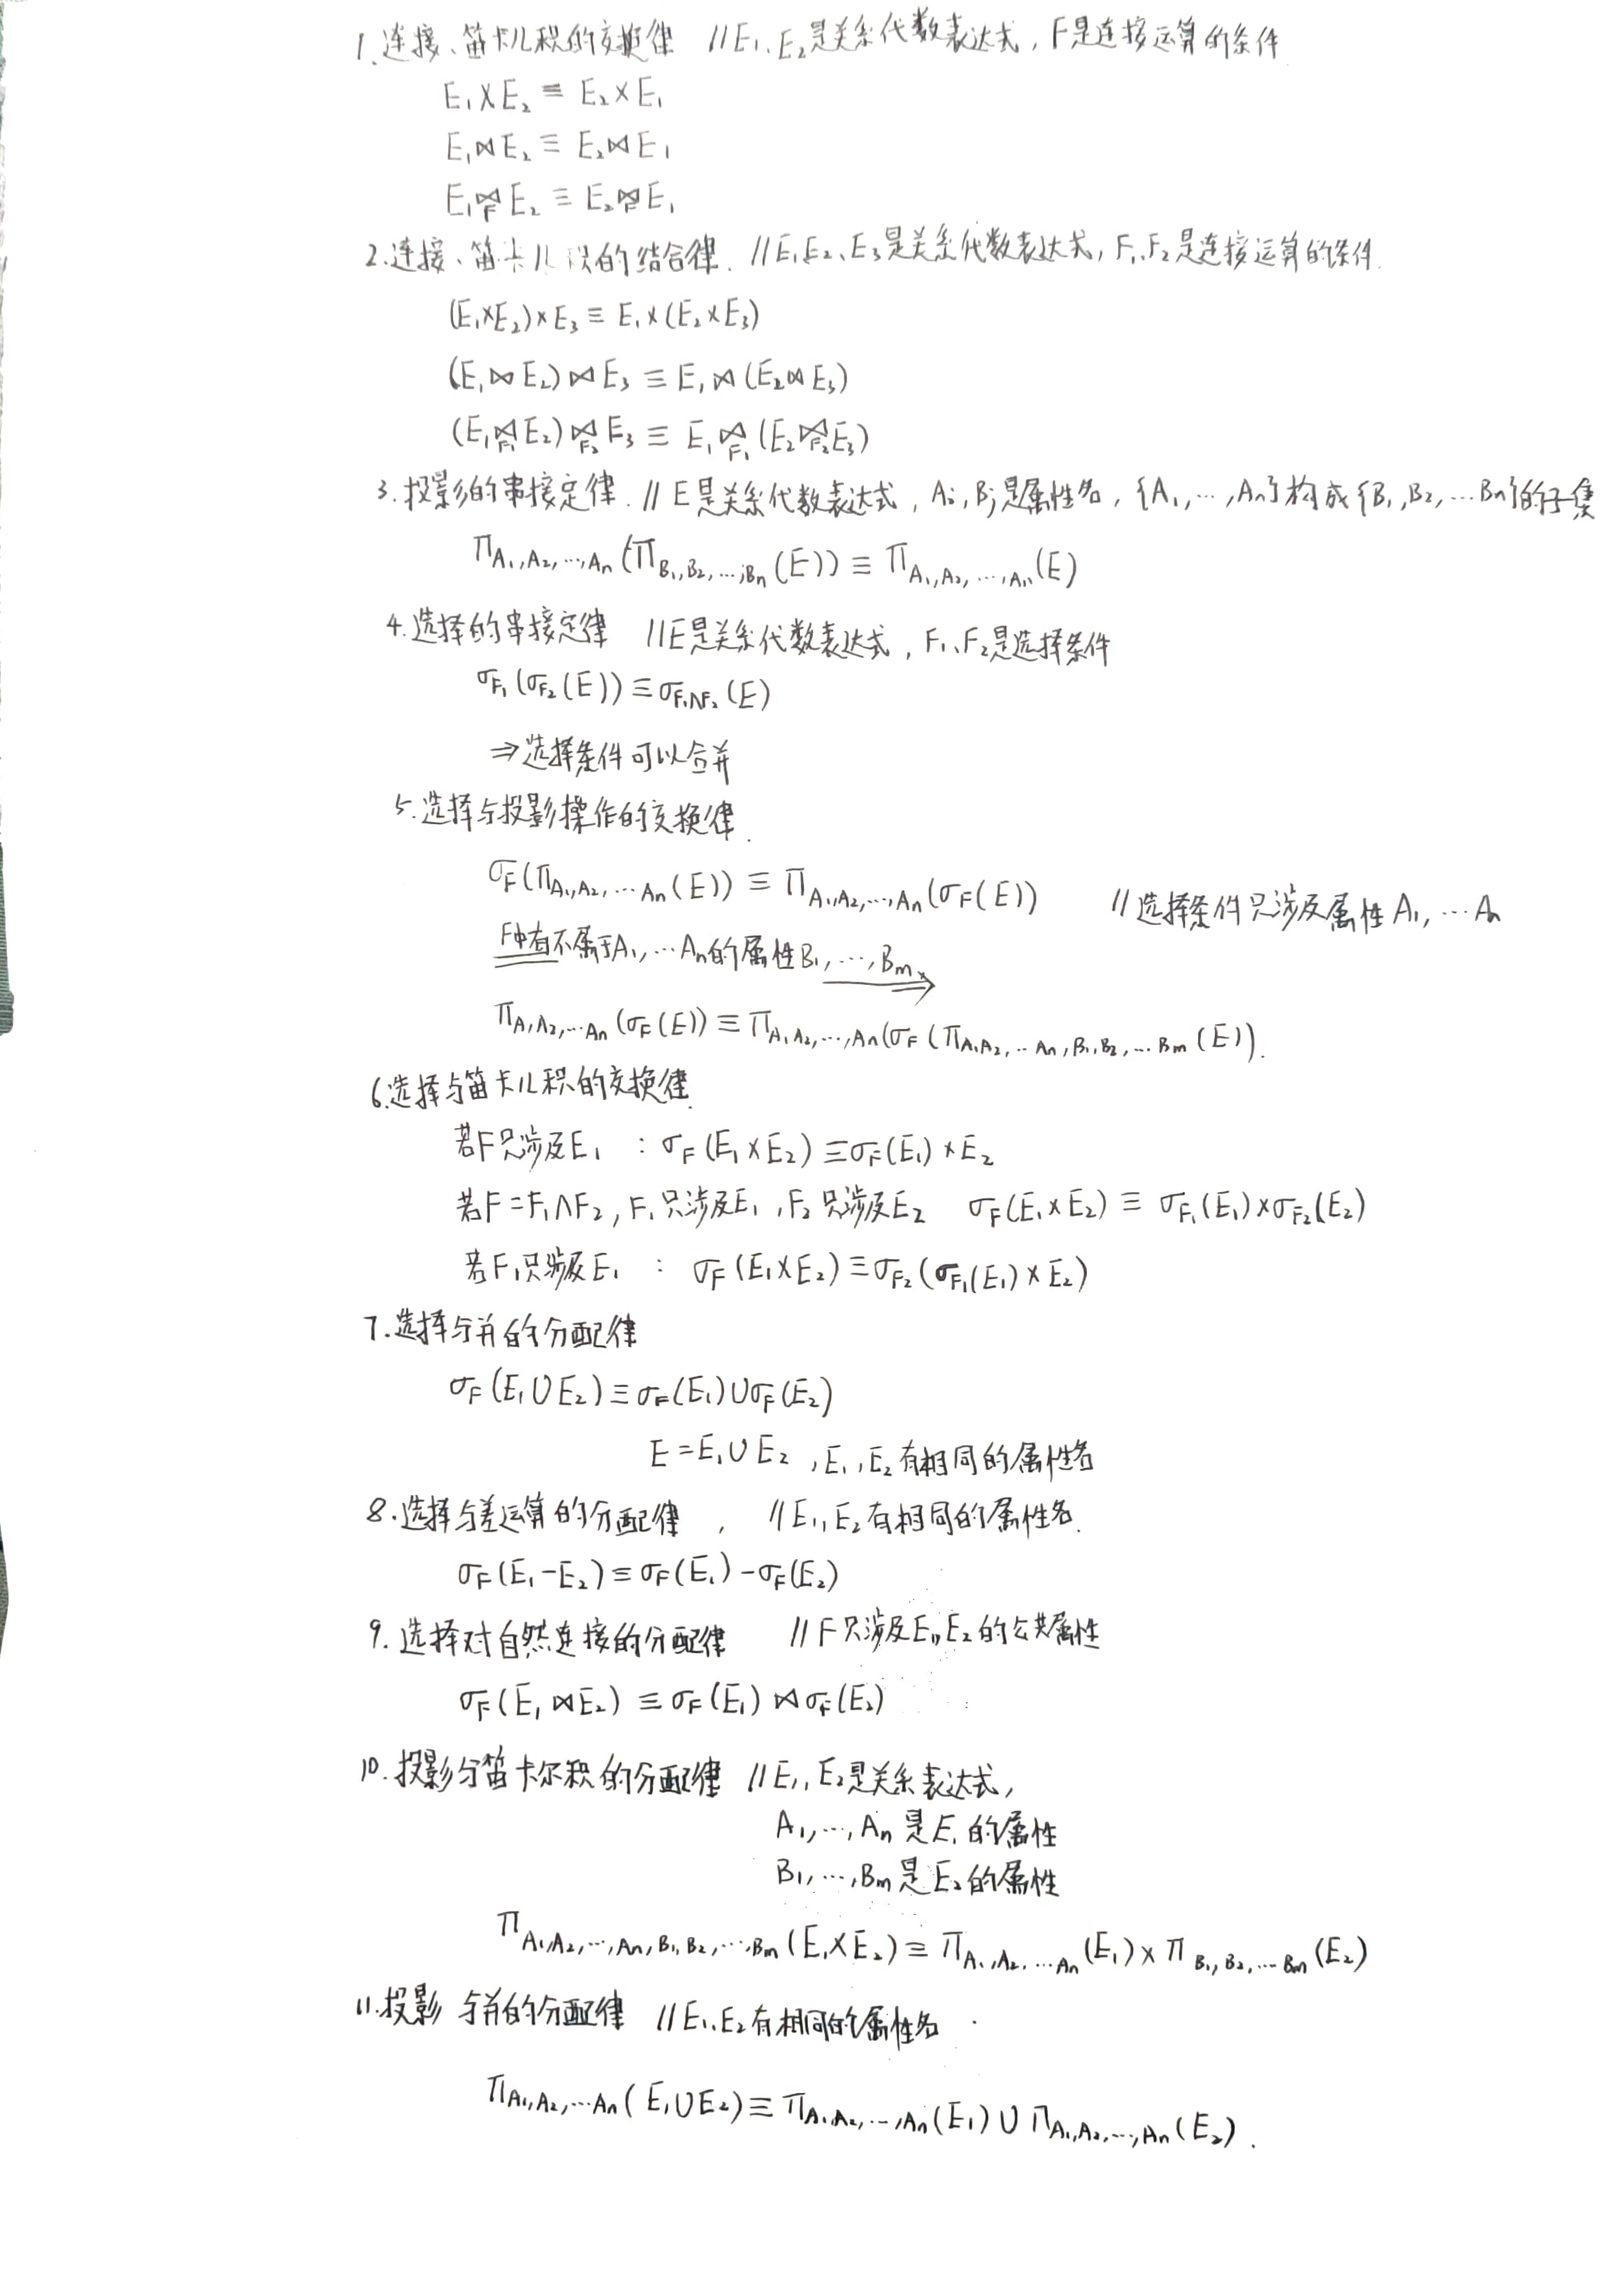 1.连接、笛卡儿积的交换律 //E₁、E₂是关系代数表达式，F是连接运算的条件
E₁×E₂≡E₂×E₁
E₁⋈E₂≡E₂⋈E₁
E₁⋈_F E₂≡E₂⋈_F E₁
2.连接、笛卡儿积的结合律. //E₁E₂、E₃是关系代数表达式，F₁、F₂是连接运算的条件.
(E₁×E₂)×E₃≡E₁×(E₂×E₃)
(E₁⋈E₂)⋈E₃≡E₁⋈(E₂⋈E₃)
(E₁⋈_F₁ E₂)⋈_F₂ E₃≡E₁⋈_F₁(E₂⋈_F₂ E₃)
3.投影的串接定律.//E是关系代数表达式，Ai,Bj是属性名，{A₁,…,An}构成{B₁,B₂,…Bn}的子集
Π_A₁,A₂,…,An(Π_B₁,B₂,…,Bn(E))≡Π_A₁,A₂,…,An(E)
4.选择的串接定律 //E是关系代数表达式，F₁、F₂是选择条件
σ_F₁(σ_F₂(E))≡σ_F₁∧F₂(E)
⇒选择条件可以合并
5.选择与投影操作的交换律.
σ_F(Π_A₁,A₂,…An(E))≡Π_A₁,A₂,…,An(σ_F(E)) //选择条件只涉及属性A₁,…An
F中有不属于A₁,…An的属性B₁,…,Bm
Π_A₁A₂,…An(σ_F(E))≡Π_A₁A₂,…,An(σ_F(Π_A₁A₂,…An,B₁,B₂,…Bm(E)).
6.选择与笛卡儿积的交换律.
若F只涉及E₁ :σ_F(E₁×E₂)≡σ_F(E₁)×E₂
若F=F₁∧F₂,F₁只涉及E₁,F₂只涉及E₂ σ_F(E₁×E₂)≡σ_F₁(E₁)×σ_F₂(E₂)
若F₁只涉及E₁ : σ_F(E₁×E₂)≡σ_F₂(σ_F₁(E₁)×E₂)
7.选择与并的分配律
σ_F(E₁∪E₂)≡σ_F(E₁)∪σ_F(E₂)
E=E₁∪E₂ ,E₁,E₂有相同的属性名
8.选择与差运算的分配律， //E₁,E₂有相同的属性名.
σ_F(E₁-E₂)≡σ_F(E₁)-σ_F(E₂)
9.选择对自然连接的分配律 //F只涉及E₁,E₂的公共属性
σ_F(E₁⋈E₂)≡σ_F(E₁)⋈σ_F(E₂)
10.投影与笛卡尔积的分配律 //E₁,E₂是关系表达式,
A₁,…,An是E₁的属性
B₁,…,Bm是E₂的属性
Π_A₁,A₂,…,An,B₁,B₂,…,Bm(E₁×E₂)≡Π_A₁,A₂,…An(E₁)×Π_B₁,B₂,…Bm(E₂)
11.投影与并的分配律 //E₁、E₂有相同的属性名.
Π_A₁,A₂,…An(E₁∪E₂)≡Π_A₁,A₂,…,An(E₁)∪Π_A₁,A₂,…,An(E₂).